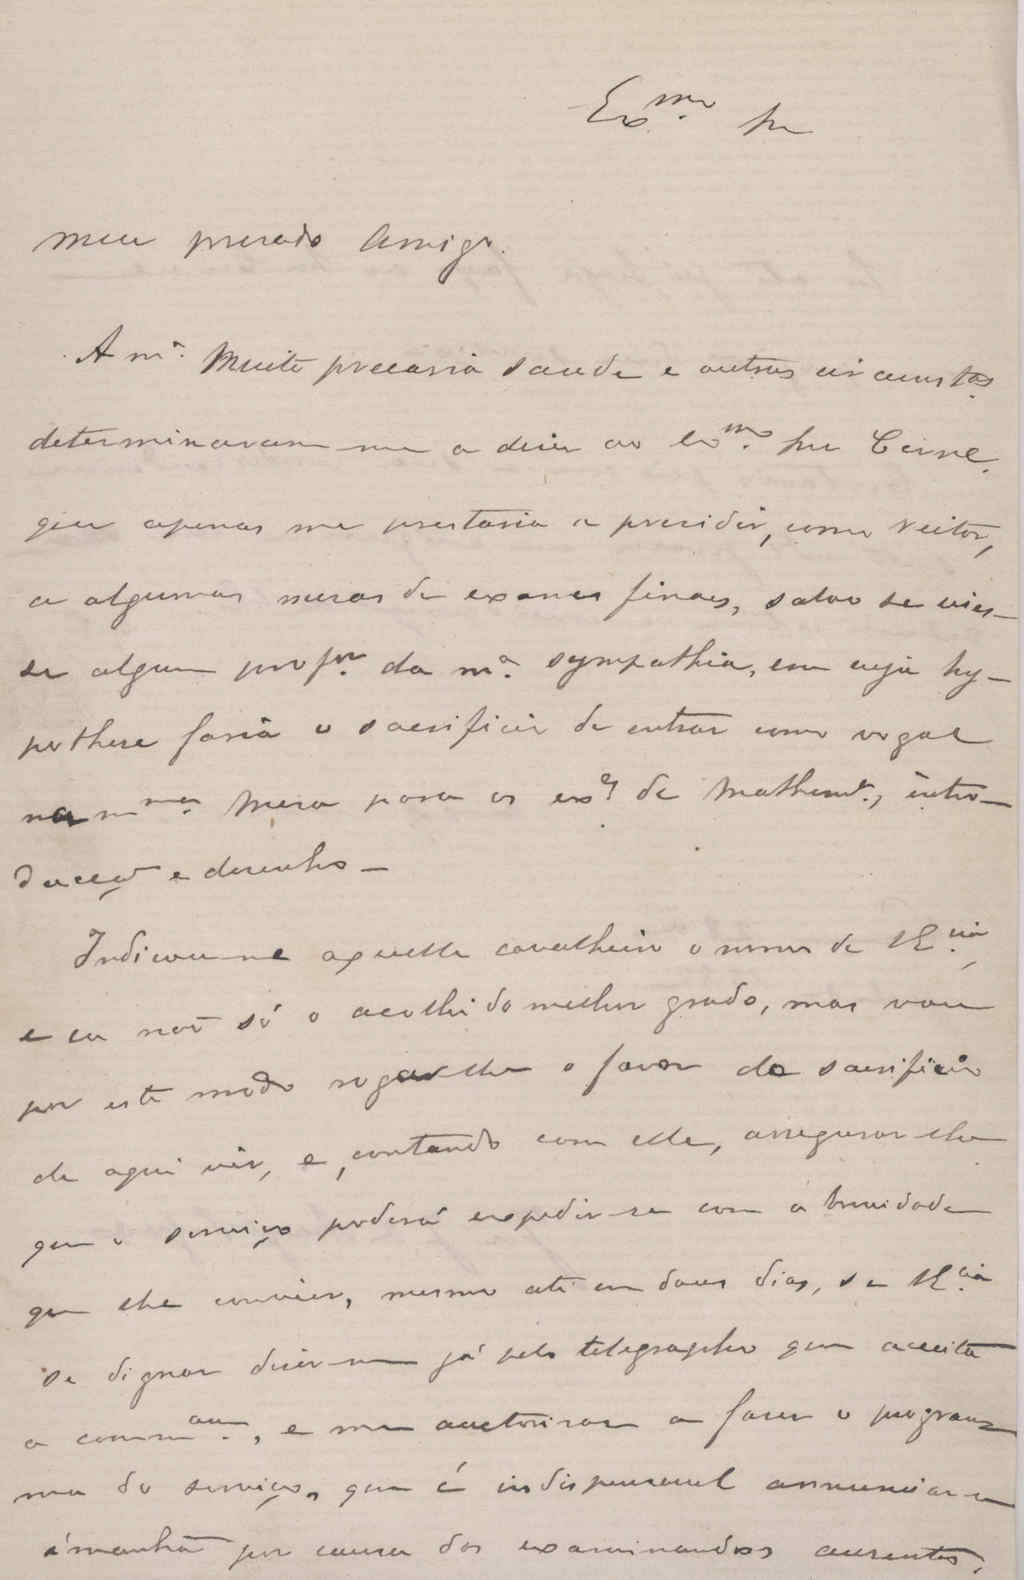 Ex.mo Snr
Meu presado Amigo.
A m.ª muito precaria saude e outras circumstas
determinaram-me a dizer ao Ex.mo Snr Cirne,
que apenas me prestaria a presidir, como reitor,
a algumas mesas de exames finaes, salvo se vies-
se algum profsor. da m.ª sympathia, em cuja hy-
pothese faria o sacrificio de entrar como vogal
na m.ma mesa para os exes de Mathem.ª, intro-
ducção e desenho —
Indicou-me aquelle cavalheiro o nome de V. Ex.cia,
e eu não só o acolhi do melhor grado, mas vou
por este modo rogar-lhe o favor do sacrificio
de aqui vir, e, contando com elle, assegurar-lhe
que o serviço poderá expedir-se com a brevidade
que lhe convier, mesmo até em dous dias, se V. Ex.cia
se dignar dizer-me já pelo telegrapho que acceita
a comm.am, e me auctorisar a fazer o program-
ma do serviço, que é indispensavel annunciar-se
ámanhã por causa dos examinandos ausentes,